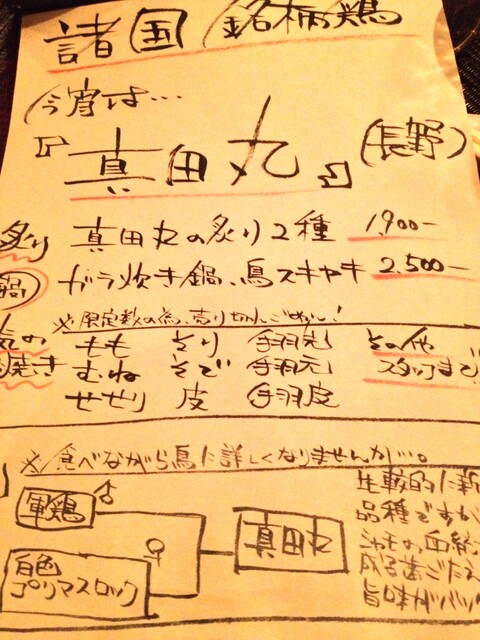 諸国銘柄鶏
今宵は…
『真田丸』(長野)
炙り 真田丸の炙り2種 1,900-
鍋 ガラ炊き鍋、鳥スキヤキ 2,500-
※限定数の為、売り切れごめん!
もも そり 手羽先 その他
焼き むね そで 手羽元 スタッフまで
せせり 皮 手羽皮
※食べながら鳥に詳しくなりませんか…。
軍鶏 ♂
♀
真田丸
白色プリマスロック
比較的に新
品種ですが
シャモの血統
成る歯ごたえ
旨味がバツ